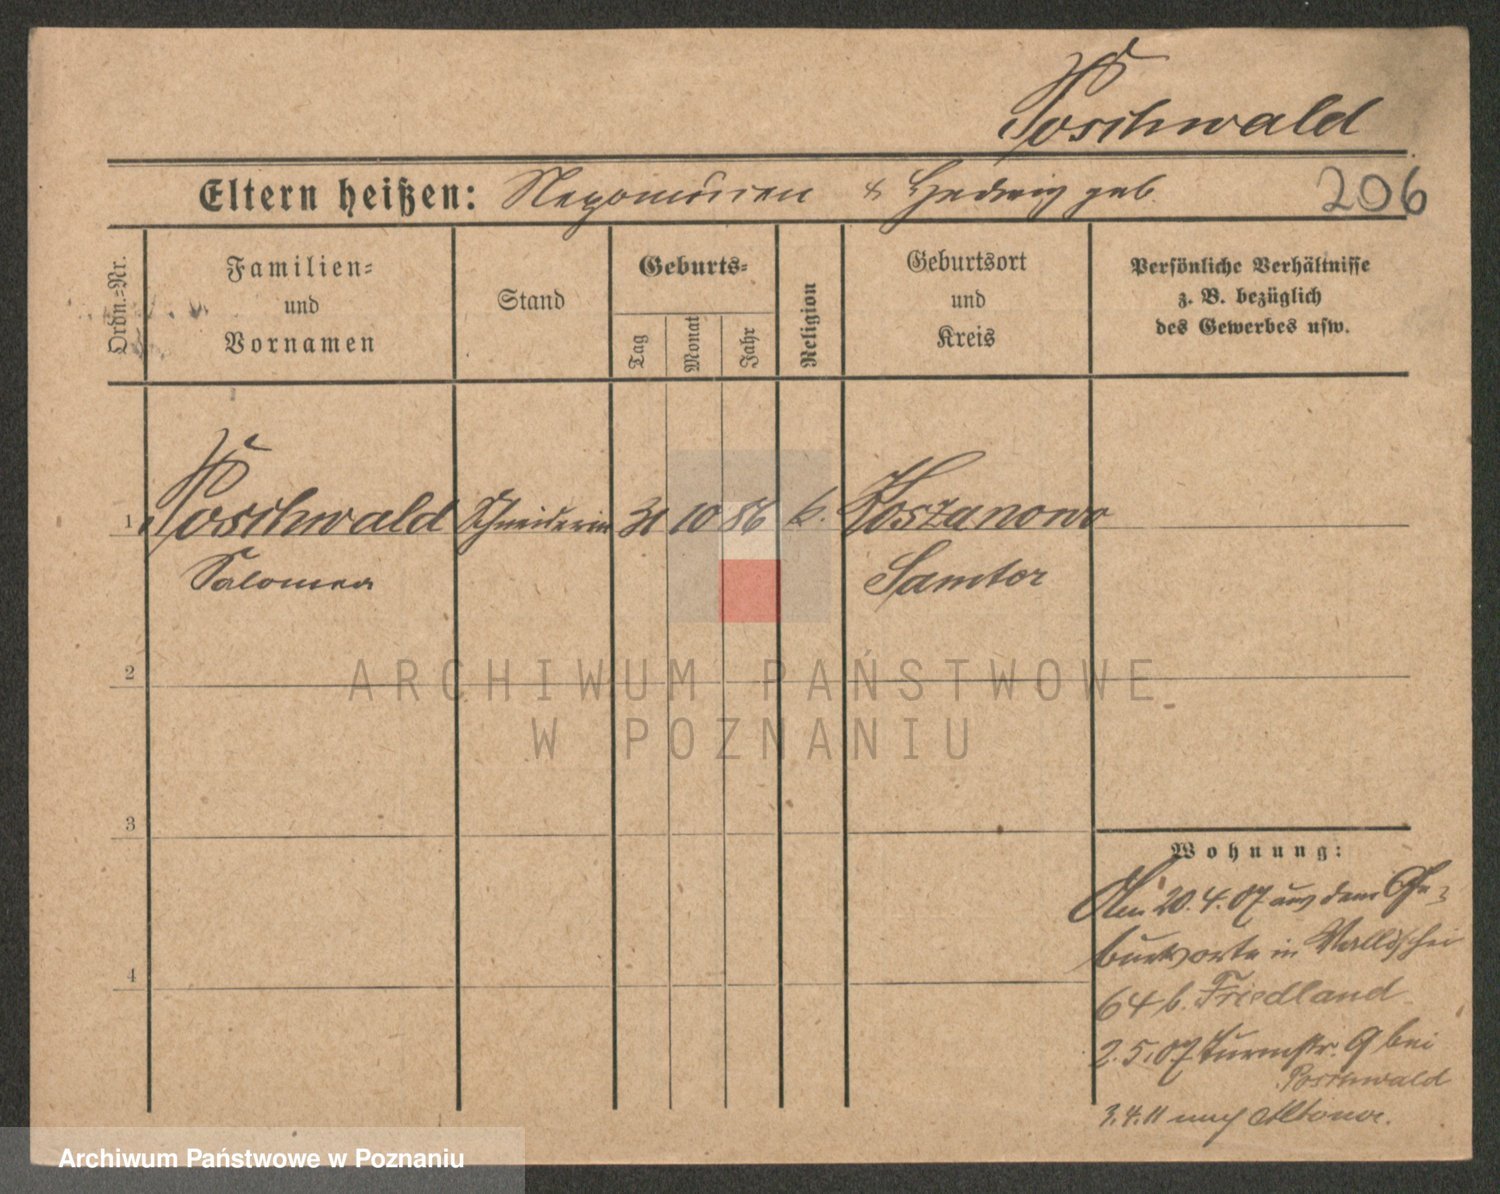 Poschwald
Eltern heißen: Nepomucen & Hedwig geb. 206
Ordn.=Nr.
Familien=
und
Vornamen
Stand
Geburts=
Tag
Monat
Jahr
Religion
Geburtsort
und
Kreis
Persönliche Verhältnisse
z. B. bezüglich
des Gewerbes usw.
1 Poschwald Schneiderin 31 10 86 k. Koszanowo
Salomea Samter
2
ARCHIWUM PAŃSTWOWE
W POZNANIU
3
4
Wohnung:
Am 20.4.07 aus dem Ge=
burtsorte in Wallischei
64 b. Friedland
2.5.07 Turmstr. 9 bei
Poschwald
3.4.11 nach Altona.
Archiwum Państwowe w Poznaniu